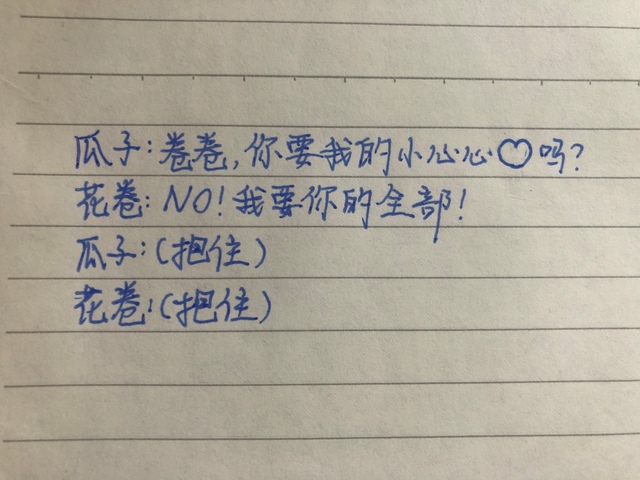 瓜子:卷卷,你要我的小心心♡吗?
花卷:NO!我要你的全部!
瓜子:(抱住)
花卷:(抱住)